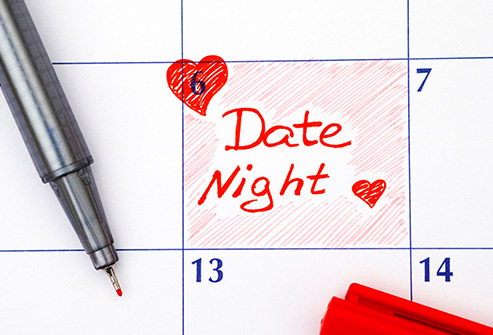 6 7
Date
Night
13 14